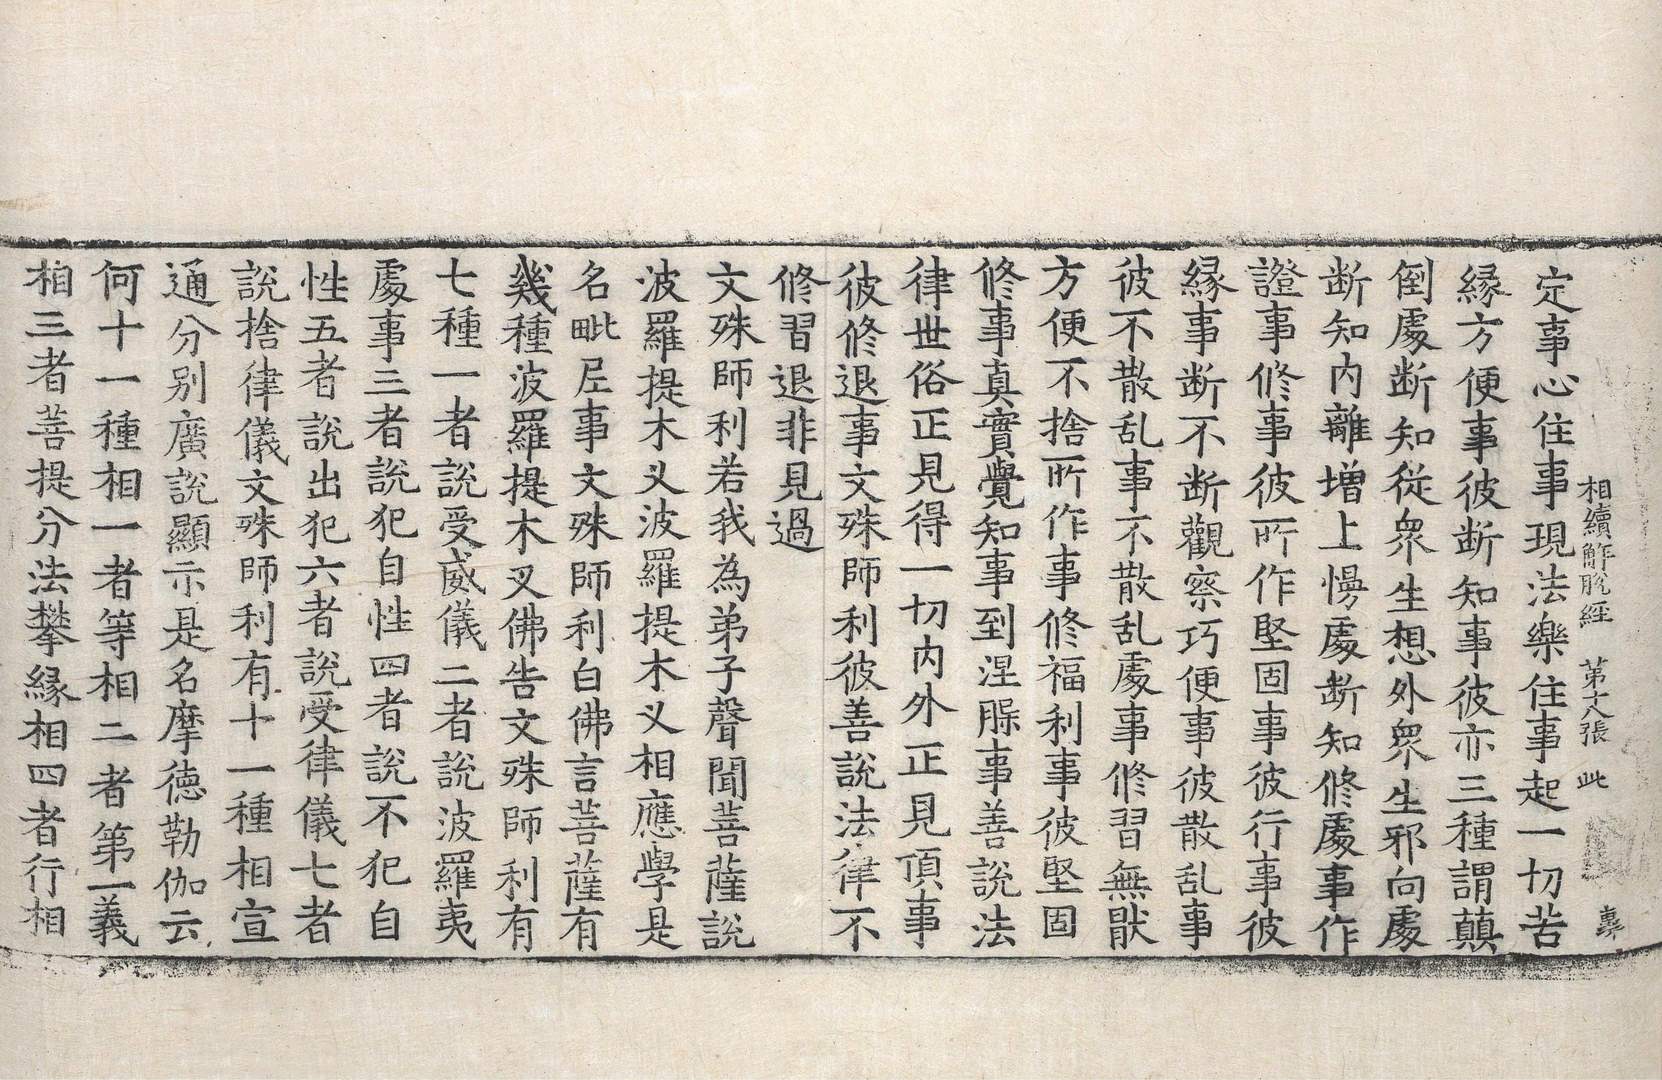 相續解脫經 第十八張 此
定事心住事現法樂住事起一切苦
縁方便事彼断知事彼亦三種謂顛
倒處断知從衆生想外衆生邪向處
断知內離增上慢處断知修處事作
證事修事彼所作堅固事彼行事彼
縁事断不断觀察巧便事彼散乱事
彼不散乱事不散乱處事修習無猒
方便不捨所作事修福利事彼堅固
修事真實覺知事到涅槃事善說法
律世俗正見得一切內外正見頂事
彼修退事文殊師利彼善說法律不
修習退非見過
文殊師利若我為弟子聲聞菩薩說
波羅提木义波羅提木义相應學是
名毗尼事文殊師利白佛言菩薩有
幾種波羅提木叉佛告文殊師利有
七種一者說受威儀二者說波羅夷
處事三者說犯自性四者說不犯自
性五者說出犯六者說受律儀七者
說捨律儀文殊師利有十一種相宣
通分别廣說顯示是名摩德勒伽云
何十一種相一者等相二者第一義
相三者菩提分法攀緣相四者行相